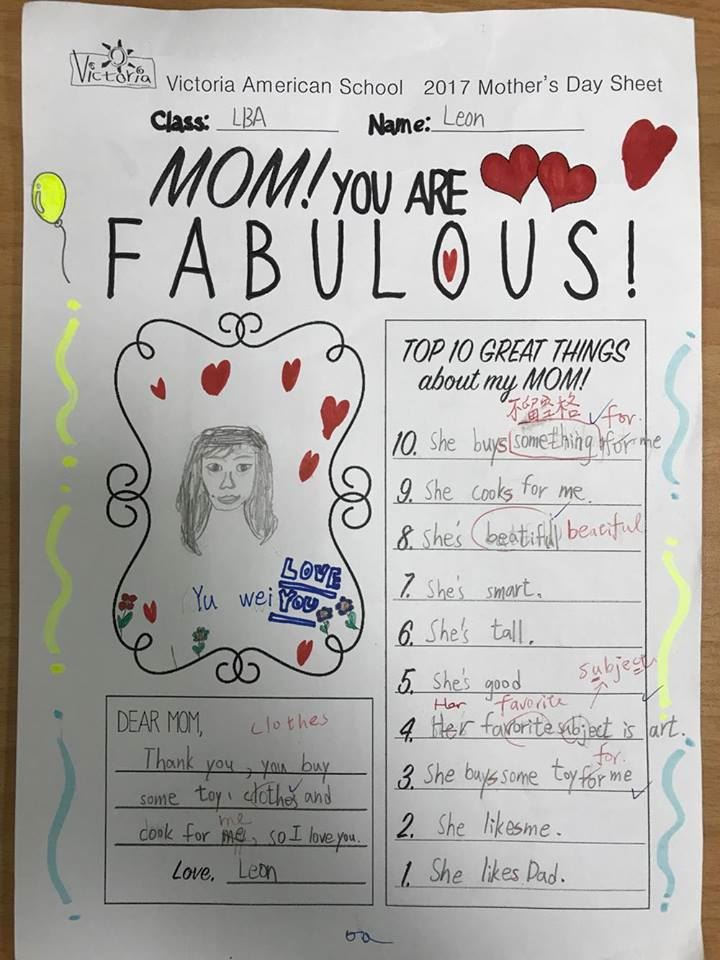 Victoria
Victoria American School 2017 Mother's Day Sheet
Class: LBA Name: Leon
MOM! YOU ARE
FABULOUS!
TOP 10 GREAT THINGS
about my MOM!
不留空格 for.
10. She buys something for me
9. She cooks for me.
8. She's beatiful beaciful
7. She's smart.
6. She's tall.
5. She's good
subject
Her favorite
4. Her favorite subject is art.
for.
3. She buys some toy for me
2. She likes me.
1. She likes Dad.
LOVE
Yu wei YOU
DEAR MOM, clothes
Thank you, you buy
some toy, clothes and
me
cook for me, so I love you.
Love, Leon